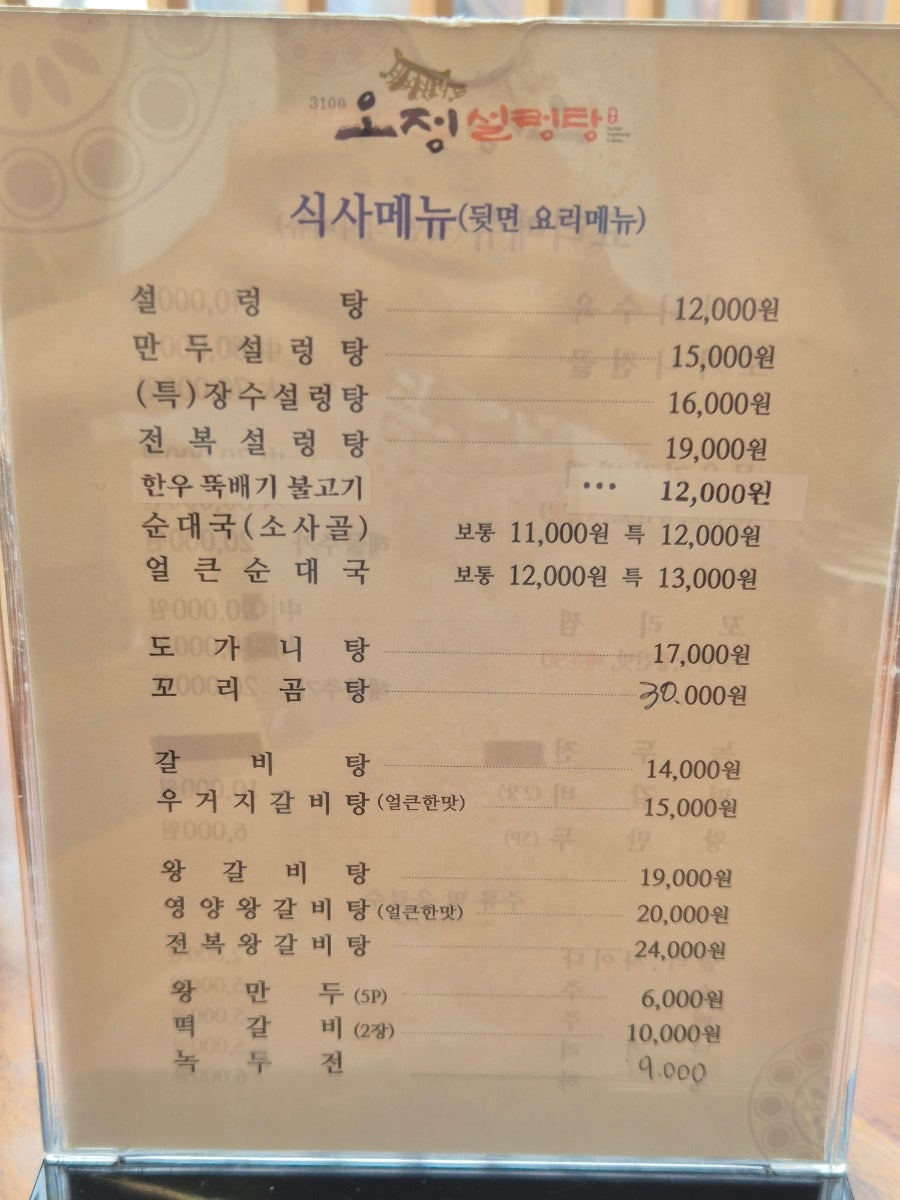 3100 오정설렁탕
식사메뉴(뒷면 요리메뉴)
설렁탕 12,000원
만두설렁탕 15,000원
(특)장수설렁탕 16,000원
전복설렁탕 19,000원
한우 뚝배기 불고기 ··· 12,000원
순대국(소사골) 보통 11,000원 특 12,000원
얼큰순대국 보통 12,000원 특 13,000원
도가니탕 17,000원
꼬리곰탕 30.000원
갈비탕 14,000원
우거지갈비탕(얼큰한맛) 15,000원
왕갈비탕 19,000원
영양왕갈비탕(얼큰한맛) 20,000원
전복왕갈비탕 24,000원
왕만두(5P) 6,000원
떡갈비(2장) 10,000원
녹두전 9.000